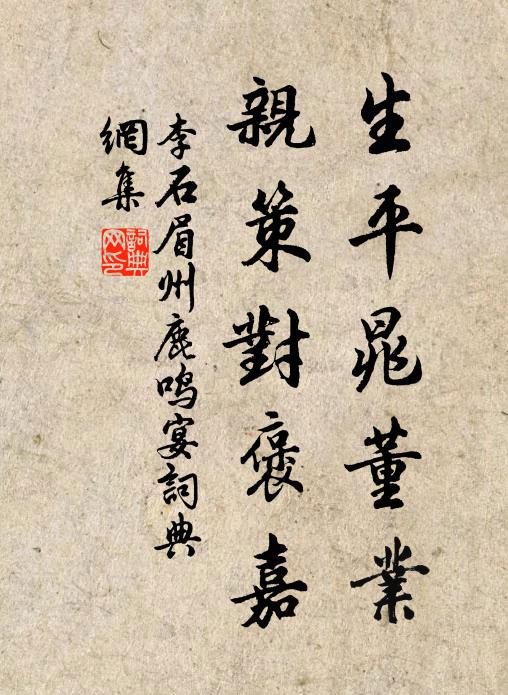 生平晁董業
親策對褒嘉
李石眉州鹿鳴宴詞典
網集
詞典網印